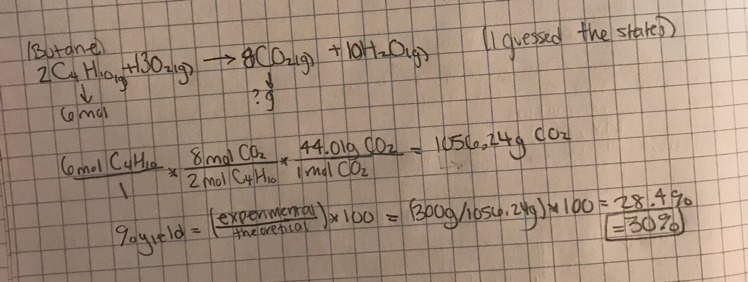 (Butane)
2C4H10(g) + 13O2(g) → 8CO2(g) + 10H2O(g) (I guessed the states)
↓ ↓
6mol ?g
6mol C4H10/1 * 8mol CO2/2mol C4H10 * 44.01g CO2/1mol CO2 = 1056.24g CO2
%yield = (experimental/theoretical) * 100 = (300g/1056.24g) * 100 = 28.4%
=30%